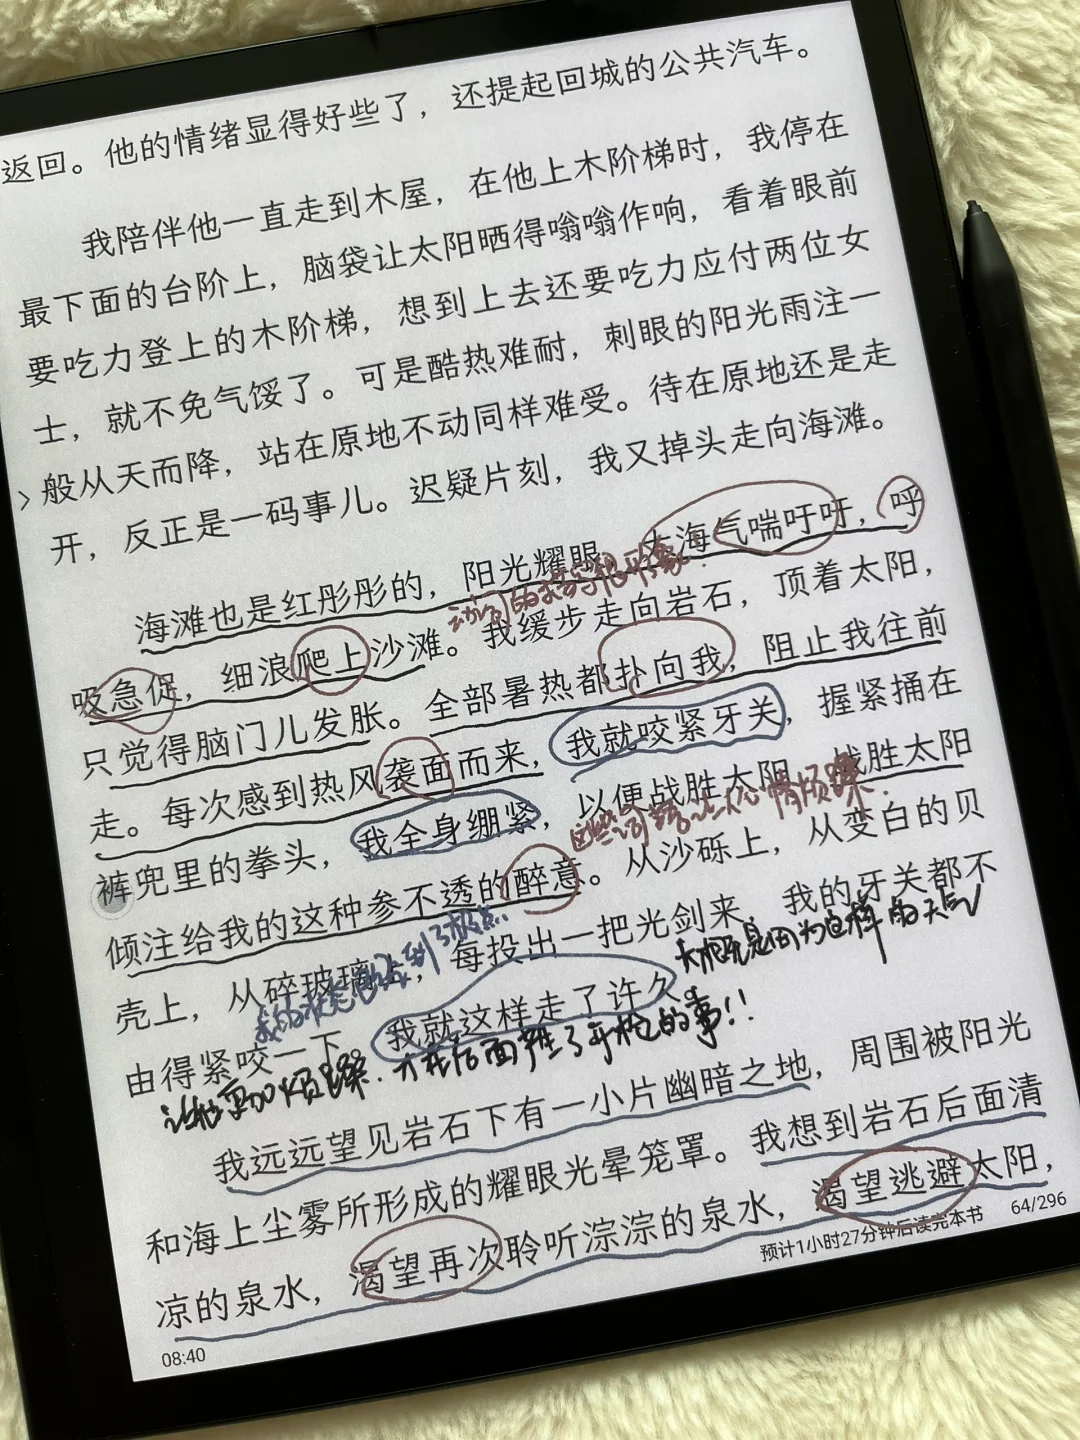 返回。他的情绪显得好些了，还提起回城的公共汽车。
我陪伴他一直走到木屋，在他上木阶梯时，我停在
最下面的台阶上，脑袋让太阳晒得嗡嗡作响，看着眼前
要吃力登上的木阶梯，想到上去还要吃力应付两位女
士，就不免气馁了。可是酷热难耐，刺眼的阳光雨注一
般从天而降，站在原地不动同样难受。待在原地还是走
开，反正是一码事儿。迟疑片刻，我又掉头走向海滩。
海滩也是红彤彤的，阳光耀眼，大海气喘吁吁，呼
动词的描写很形象.
吸急促，细浪爬上沙滩。我缓步走向岩石，顶着太阳，
只觉得脑门儿发胀。全部暑热都扑向我，阻止我往前
走。每次感到热风袭面而来，我就咬紧牙关，握紧捅在
裤兜里的拳头，我全身绷紧，以便战胜太阳，战胜太阳
这些词语让人心情烦躁.
倾注给我的这种参不透的醉意。从沙砾上，从变白的贝
壳上，从碎玻璃上，每投出一把光剑来，我的牙关都不
我的状态到了极点.
大概是因为这样的天气
由得紧咬一下。我就这样走了许久。
让他更加烦躁.才在后面发生了开枪的事!!
我远远望见岩石下有一小片幽暗之地，周围被阳光
和海上尘雾所形成的耀眼光晕笼罩。我想到岩石后面清
凉的泉水，渴望再次聆听淙淙的泉水，渴望逃避太阳，
08:40
预计1小时27分钟后读完本书
64/296